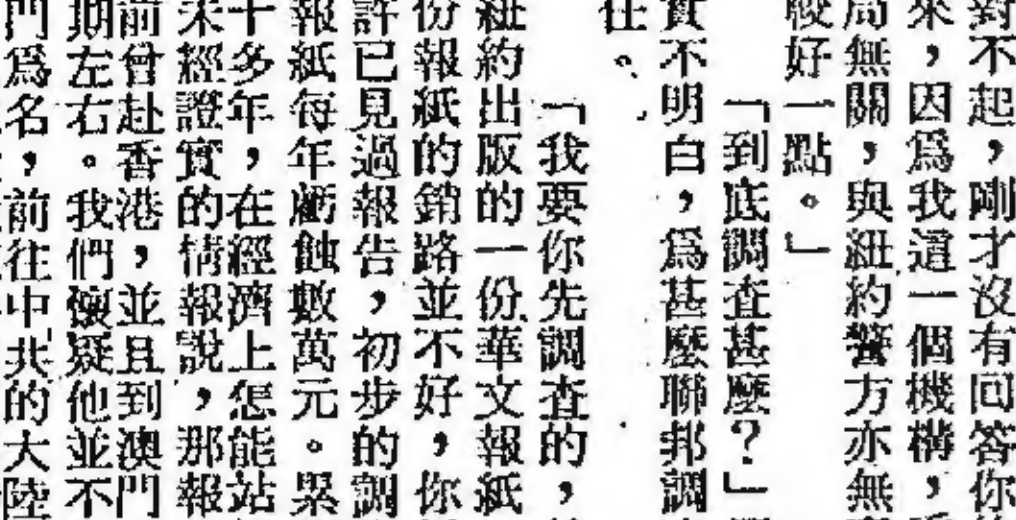 對不起，剛才沒有回答你
來，因爲我這一個機構，
局無關，與紐約警方亦無
較好一點。」
「到底調查甚麼？」
實不明白，爲甚麼聯邦調
任。
「我要你先調查的，
紐約出版的一份華文報紙
份報紙的銷路並不好，你
許已見過報告，初步的調
報紙每年虧蝕數萬元。累
十多年，在經濟上怎能站
未經證實的情報說，那報
前曾赴香港，並且到澳門
期左右。我們懷疑他並不
門爲名，前往中共的大陸